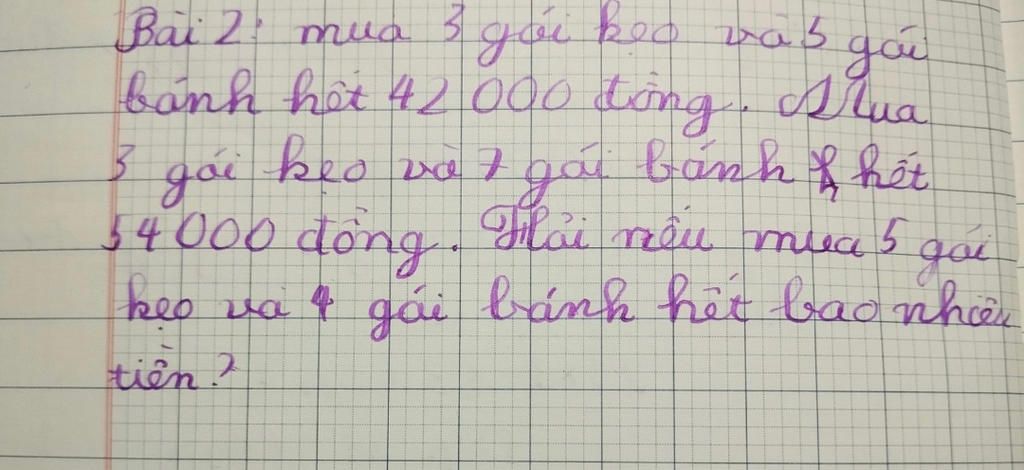 Bài 2: mua 3 gói kẹo và 5 gói
bánh hết 42 000 đồng. Mua
3 gói kẹo và 7 gói bánh hết
54 000 đồng. Hỏi nếu mua 5 gói
kẹo và 4 gói bánh hết bao nhiêu
tiền?